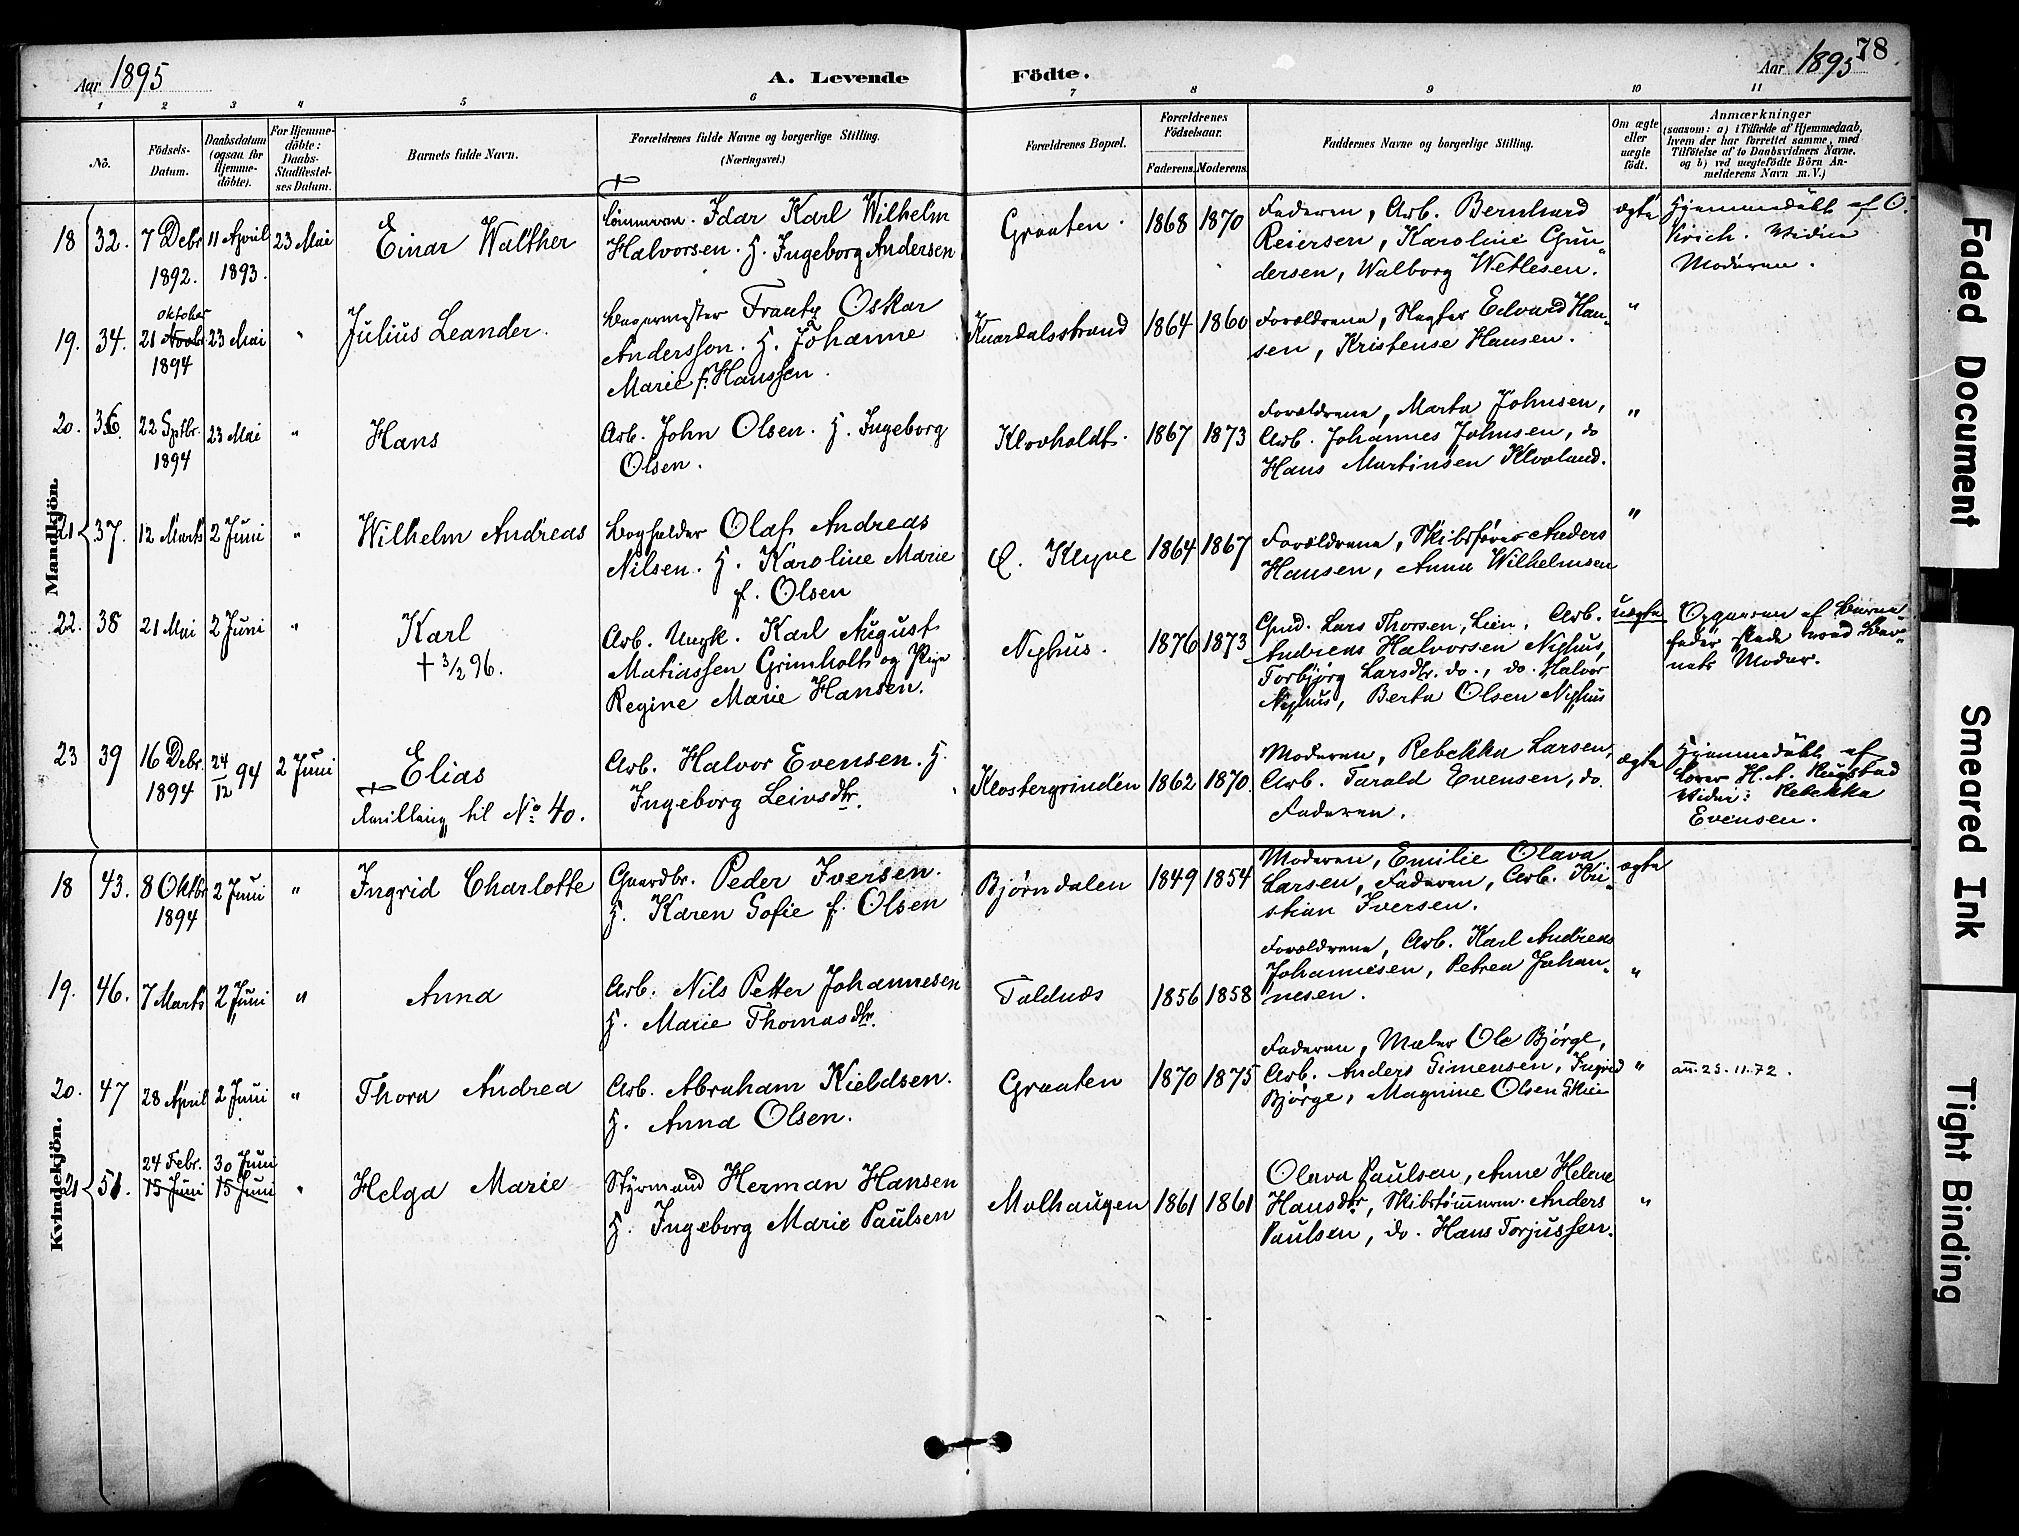 Aar 1895
A. Levende
Födte.
Aar 1895
78
1 2 3 4 5 6 7 8 9 10 11
No.
Födsels-
Datum.
Daabsdatum
(ogsaa for
Hjemme-
döbte).
For Hjemme-
döbte:
Daabs-
Stadfestel-
ses Datum.
Barnets fulde Navn.
Forældrenes fulde Navne og borgerlige Stilling.
(Næringsvei.)
Forældrenes Bopæl.
Forældrenes
Födselsaar.
Faderens. Moderens.
Faddernes Navne og borgerlige Stilling.
Om ægte
eller
uægte
født.
Anmærkninger
(saasom: a) i Tilfælde af Hjemmedaab,
hvem der har forrettet samme, med
Tilföielse af to Daabsvidners Navne.
og b) ved uegtefödte Börn An-
melderens Navn m.V.)
Mandkjön.
18 32. 7 Debr
1892.
11 April
1893.
23 Mai
Einar Walther
Idar Karl Wilhelm
Halvorsen. H. Ingeborg Andersen
Graaten. 1868 1870
Faderen, Arb. Bernhard
Reiersen, Karoline Gun-
dersen, Walborg Wetlesen.
ægte
Hjemmedøbt af O.
Moderen.
19. 34. Oktober
21 Novbr
1894
23 Mai "
Julius Leander.
Bagermester Frantz Oskar
Andersson. H. Johanne
Marie f. Hanssen.
Knardalsstrand 1864 1860
Forældrene, Edvard Han-
sen, Kristense Hansen.
"
20. 36. 22 Sptbr.
1894
23 Mai "
Hans
Arb. John Olsen. H. Ingeborg
Olsen.
Klovholdt. 1867 1873
Forældrene, Marta Johnsen,
Arb. Johannes Johnsen, do
Hans Martinsen Klovland.
"
21 37. 12 Marts 2 Juni "
Wilhelm Andreas
Bogholder Olaf Andreas
Nilsen. H. Karoline Marie
f. Olsen
Ø. Klyve 1864 1867
Forældrene, Skibsfører Anders
Hansen, Anna Wilhelmsen
"
22. 38 21 Mai 2 Juni "
Karl
† 3/2 96.
Arb. Ungk. Karl August
Matiassen Grimholt og Pige
Regine Marie Hansen.
Nyhus. 1876 1873
Gmd. Lars Thorsen, Lien, Arb.
Andreas Halvorsen Nyhus,
Torbjørg Larsdtr. do., do. Halvor
Nyhus, Berta Olsen Nyhus
uægte
Opgaven af Barne-
fader skede ved Bar-
nets Moder.
23 39 16 Debr.
1894
24/12 94
2 Juni
Elias
Tvilling til No 40.
Arb. Halvor Evensen. H.
Ingeborg Leivsdtr.
Klostergrinden 1862 1870.
Moderen, Rebekka Larsen,
Arb. Tarald Evensen, do.
Faderen.
ægte
Hjemmedøbt af
Lærer H. A. Rugstad
Vidni: Rebekka
Evensen.
Kvindekjön.
18 43. 8 Oktbr
1894
2 Juni "
Ingrid Charlotte
Gaardbr. Peder Iversen.
H. Karen Sofie f. Olsen
Bjørndalen 1849 1854
Moderen, Emilie Olava
Larsen, Faderen, Arb. Kri-
stian Iversen.
ægte
19. 46. 7 Marts 2 Juni "
Anna
Arb. Nils Petter Johannesen
H. Marie Thomasdtr.
Taldnæs 1856 1858
Forældrene, Arb. Karl Andreas
Johannesen, Petrea Johan-
nesen.
"
20. 47 28 April 2 Juni "
Thora Andrea
Arb. Abraham Kieldsen.
H. Anna Olsen.
Graaten 1870 1875
Faderen, Maler Ole Bjørge,
Arb. Anders Simensen, Ingrid
Bjørge, Magnine Olsen Skien
"
an. 23.11.72.
21 51. 24 Febr.
15 Juni
30 Juni
15 Juni
"
Helga Marie
Styrmand Herman Hansen
H. Ingeborg Marie Paulsen
Molhaugen 1861 1861
Olava Paulsen, Anne Helene
Hansdtr, Skibstømmerm. Anders
Paulsen, do. Hans Torjussen.
"
Faded Document
Smeared Ink
Tight Binding